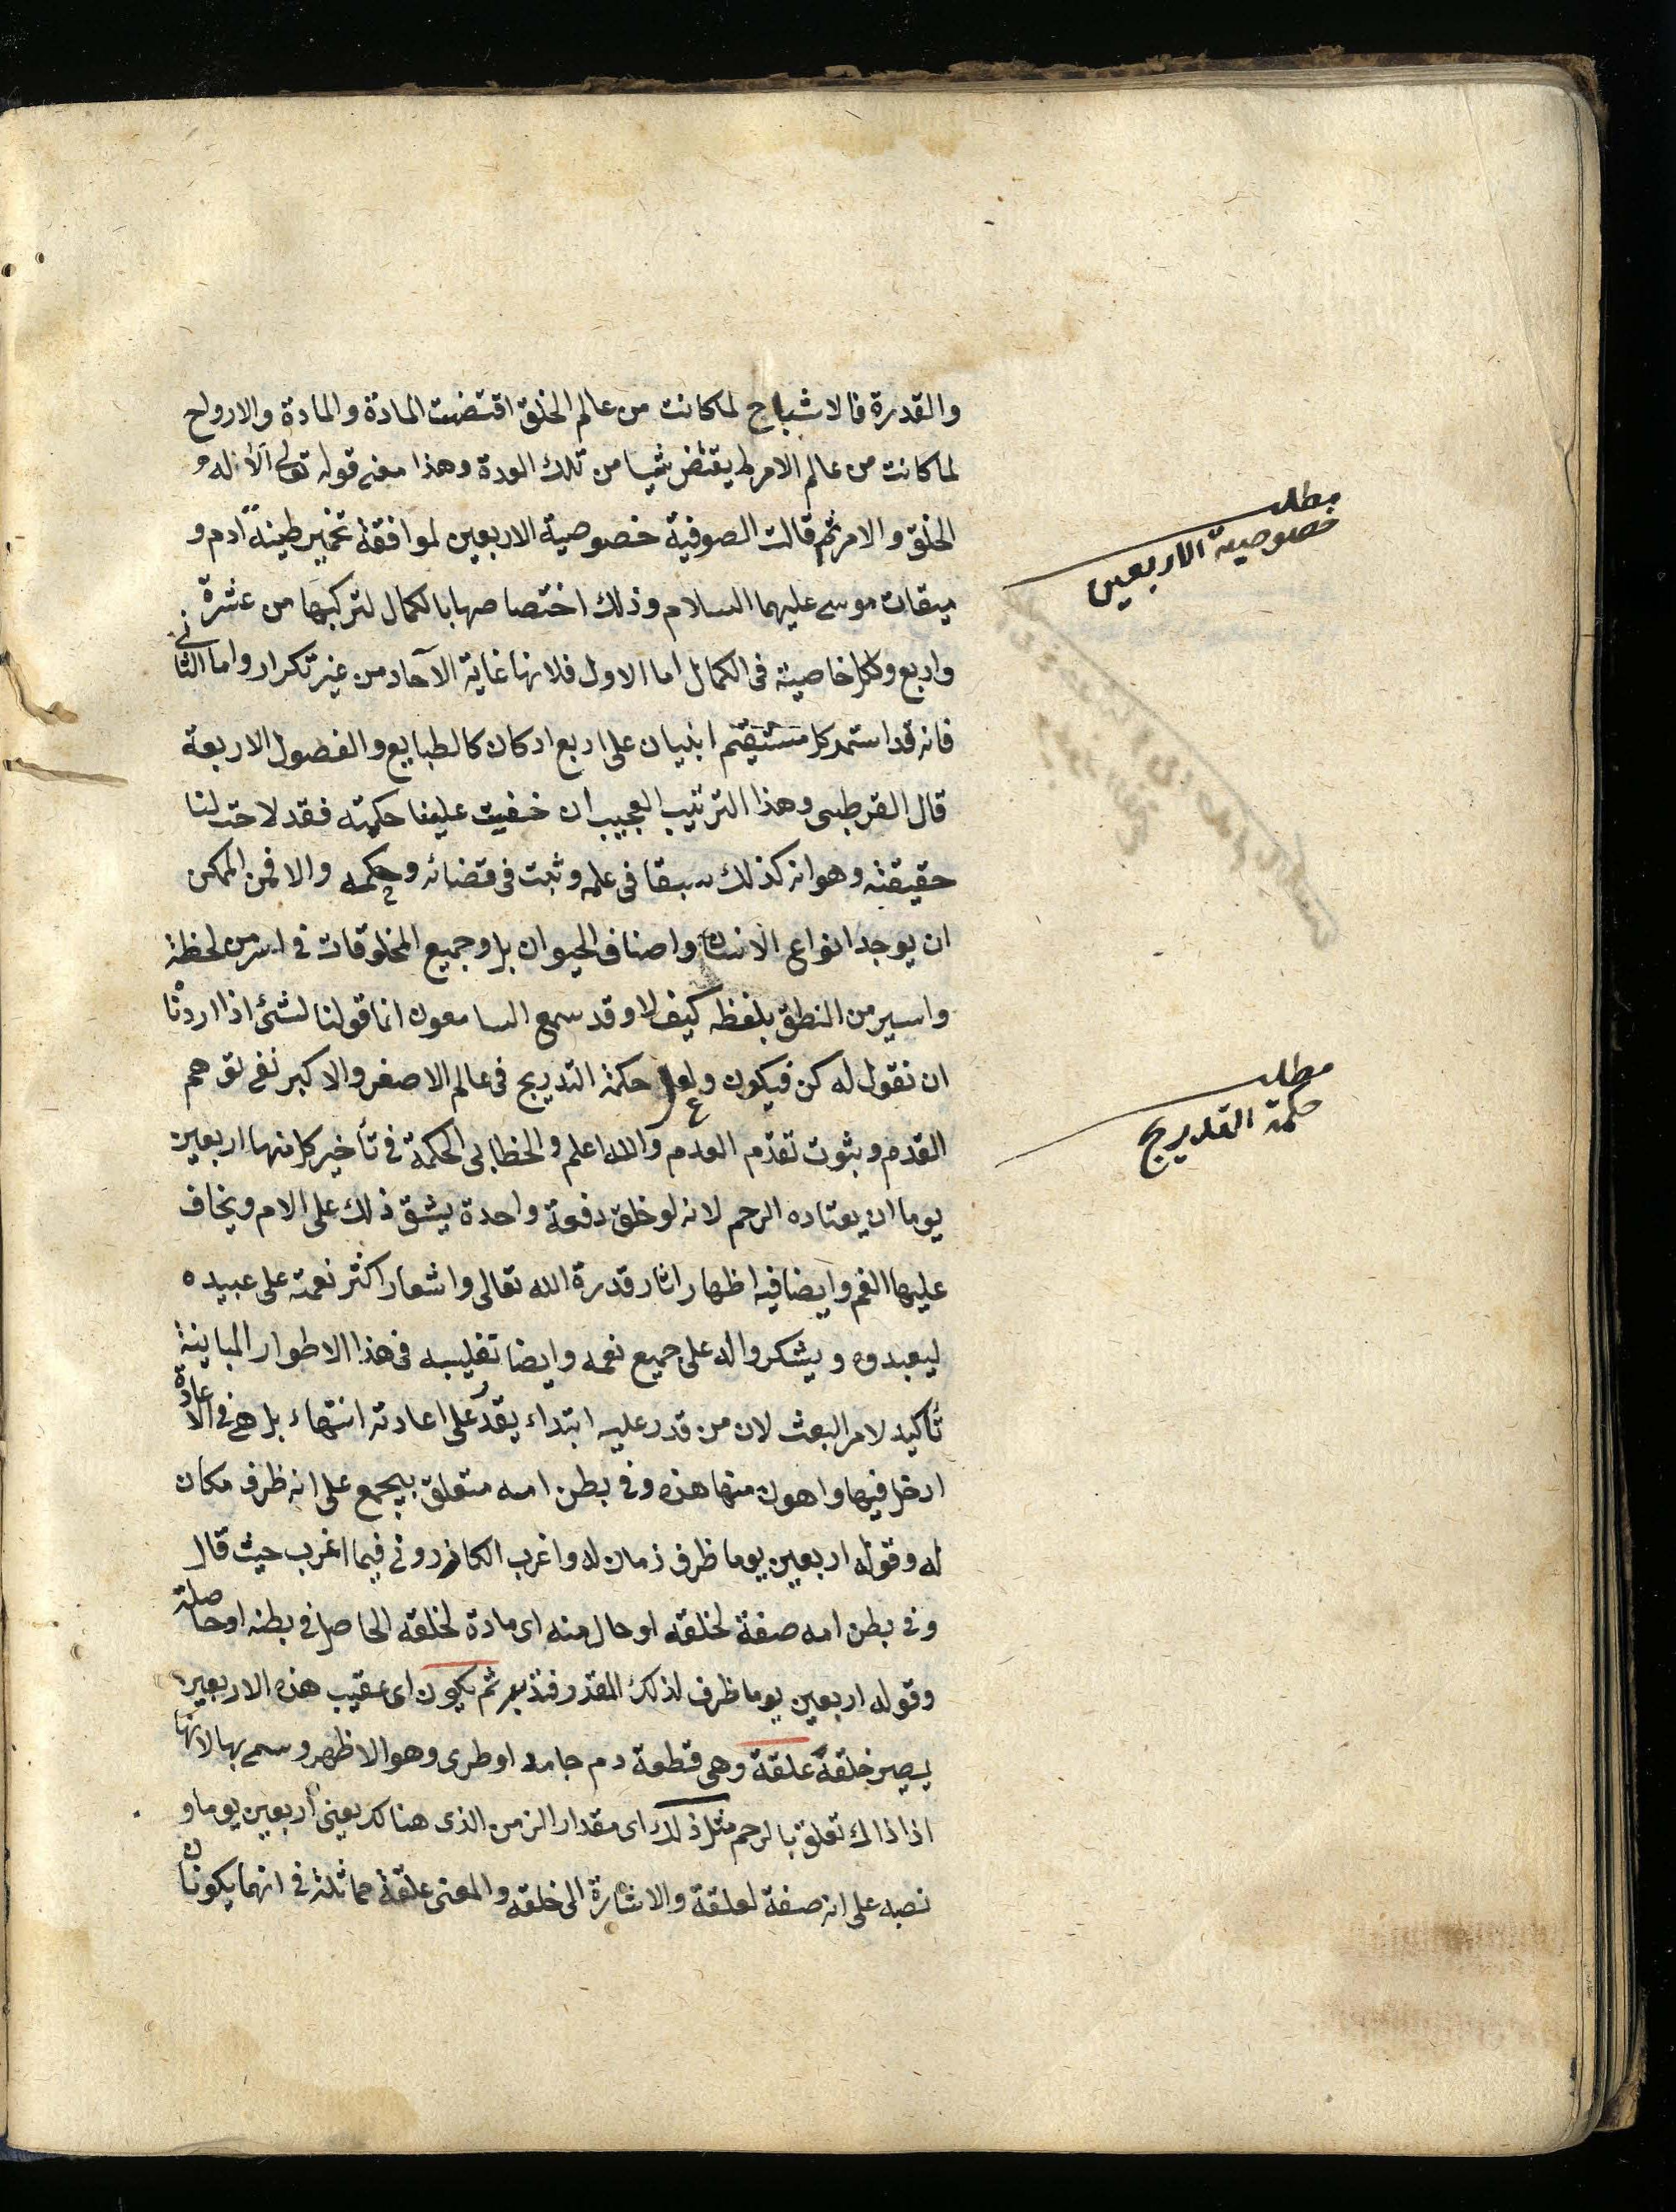 والقدرة فالاشباح لما كانت من عالم الخلق اقتضت المادة والمادة والارواح
لما كانت من عالم الامر لم يقتض شيا من تلك المدة وهذا معنى قوله تعالى الا له و
الخلق والامر ثم قالت الصوفية خصوصية الاربعين لموافقة تخمير طينة آدم و
ميقات موسى عليهما السلام وذلك اختصاصها بالكمال لتركبها من عشرة
واربع ولكل خاصية فى الكمال اما الاول فلانها غاية الآحاد من غير تكرار واما الثانى
فانه قد استمر كل مستقيم ابنيان على اربع اركان كالطبايع والفصول الاربعة
قال القرطبى وهذا الترتيب العجيب ان خفيت علينا حكمته فقد لاحت لنا
حقيقته وهو انه كذلك سبقا فى علمه وثبت فى قضائه وحكمه والا فمن الممكن
ان يوجد انواع الانسان واصناف الحيوان بل وجميع المخلوقات فى اسر من لحظة
واسير من النطق بلفظه كيف لا وقد سمع السامعون انما قولنا لشئ اذا اردنا
ان نقول له كن فيكون ولعل حكمة التدريج فى عالم الاصغر والاكبر نفى توهم
القدم وبثوت تقدم العدم والله اعلم والخطابى الحكمة فى تأخير كل منها اربعين
يوما ان يعتاده الرحم لانه لو خلق دفعة واحدة يشق ذلك على الام ويخاف
عليها الغم وايضا فيه اظهار اثار قدرة الله تعالى واشعار اكثر نعمته على عبيده
ليعبدوه ويشكروا له على جميع نعمه وايضا تغليبه فى هذا الاطوار المباينة
تأكيد لامر البعث لان من قدر عليه ابتداء يقدر على اعادته انتهاء بل هى فى الاعادة
ادخل فيها واهون منها هذه وفى بطن امه متعلق بيجمع على انه ظرف مكان
له وقوله اربعين يوما ظرف زمان له واغرب الكازرونى فيما اغرب حيث قال
وفى بطن امه صفة لخلقه او حال منه اى مادة لخلقه الحاصل فى بطنه او حاصلة
وقوله اربعين يوما ظرف لذلك المقدر فتدبر ثم يكون اى عقيب هذه الاربعين
يصير خلقة علقة وهى قطعة دم جامد او طرى وهو الاظهر وسمى بها لانها
اذا ذاك تعلق بالرحم مثل ذلك اى مقدار الزمن الذى هنالك يعنى اربعين يوما و
نصبه على انه صفة لعلقة والاشارة الى خلقه والمعنى علقة مماثلة فى انهما يكونان
مطلب
خصوصية الاربعين
مطلب
حكمة التدريج